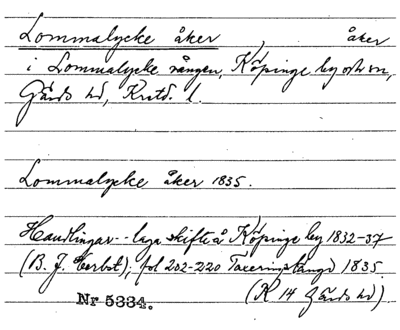 Lommalycke åker, åker
i Lommalycke vången, Köpinge by och sn,
Gärds hd, Kristd. l.
Lommalycke åker 1835.
Handlingar - laga skifte å Köpinge by 1832-37
(B. J. Herbst); fol 202-220 Taxeringslängd 1835.
Nr 5334. (K 14 Gärds hd)